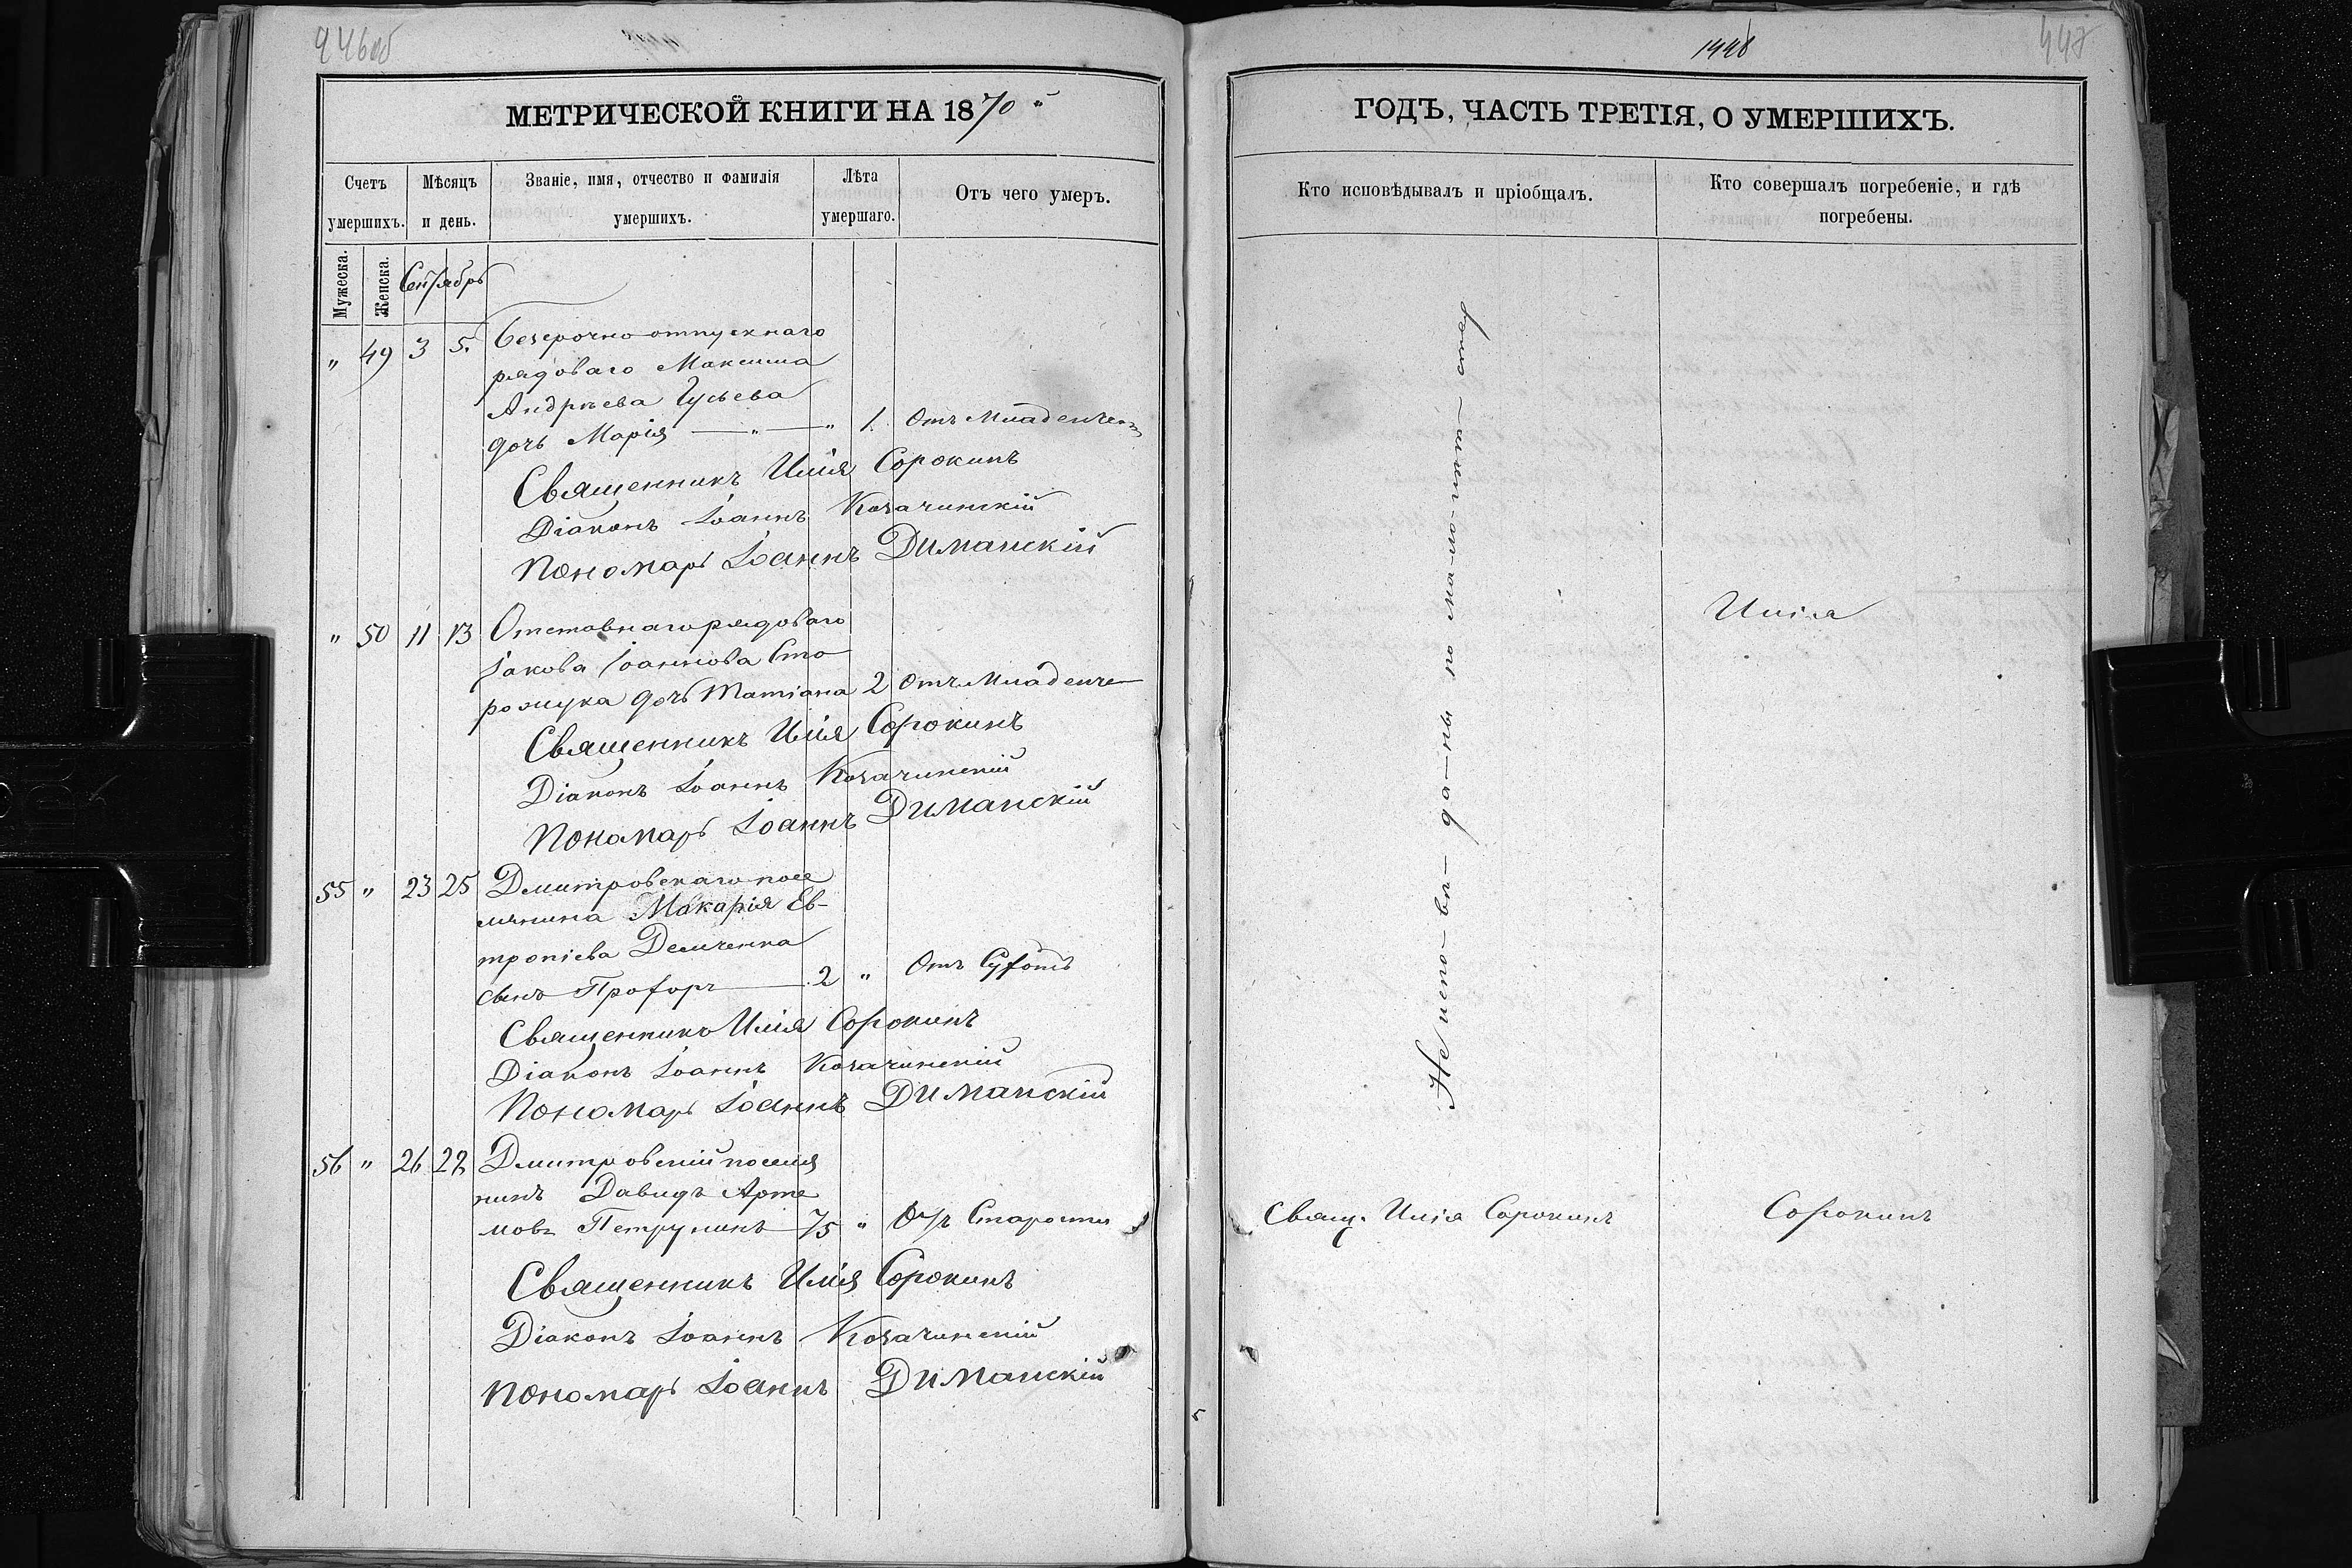 446об
МЕТРИЧЕСКОЙ КНИГИ НА 1870й
Счетъ умершихъ.
Мѣсяцъ и день.
Званіе, имя, отчество и фамилія умершихъ.
Лѣта умершаго.
Отъ чего умеръ.
Мужеска.
Женска.
Сентябрь
" 49 3 5. Безсрочно отпускнаго
рядоваго Максима
Андрѣева Гусьева
дочь Марія — " — " 1. Отъ Младенчес
Священникъ Илія Сорокинъ
Діаконъ Іоаннъ Козачинскій
Пономарь Іоаннъ Диманскій
" 50 11 13 Отставнаго рядоваго
Іакова Іоаннова Сто
рожука дочь Татіана 2 Отъ Младенче
Священникъ Илія Сорокинъ
Діаконъ Іоаннъ Козачинскій
Пономарь Іоаннъ Диманскій
55 " 23 25 Дмитровскаго посе
лянина Макарія Ев-
тропіева Демченка
сынъ Прохоръ 2 " Отъ Сухотъ
Священникъ Илія Сорокинъ
Діаконъ Іоаннъ Козачинскій
Пономарь Іоаннъ Диманскій
56 " 26 28 Дмитровскій поселя
нинъ Давидъ Арте
мовъ Петрунинъ 75 " Отъ Старости
Священникъ Илія Сорокинъ
Діаконъ Іоаннъ Козачинскій
Пономарь Іоаннъ Диманскій
1448
447
ГОДЪ, ЧАСТЬ ТРЕТІЯ, О УМЕРШИХЪ.
Кто исповѣдывалъ и пріобщалъ.
Кто совершалъ погребеніе, и гдѣ погребены.
Не испо-вѣ-да-ны по ма-ло-лѣт-ству
Илія
Свящ. Илія Сорокинъ
Сорокинъ